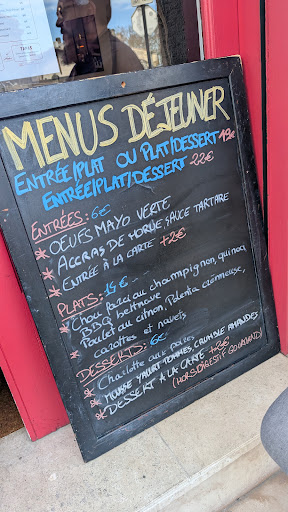 MENUS DÉJEUNER
ENTRÉE/PLAT OU PLAT/DESSERT 19€
ENTRÉE/PLAT/DESSERT 22€
ENTRÉES: 6€
* OEUFS MAYO VERTE
* ACCRAS DE MORUE, SAUCE TARTARE
* ENTRÉE À LA CARTE +2€
PLATS: 15€
* Chou farci au champignon, quinoa,
BBQ betterave
* Poulet au citron, Polenta crémeuse,
carottes et navets
DESSERTS: 6€
* Charlotte aux poires
* MOUSSE YAUURT POMMES, CRUMBLE AMANDES
* DESSERT À LA CARTE +2€
(HORS DIGESTIF GOURMAND)